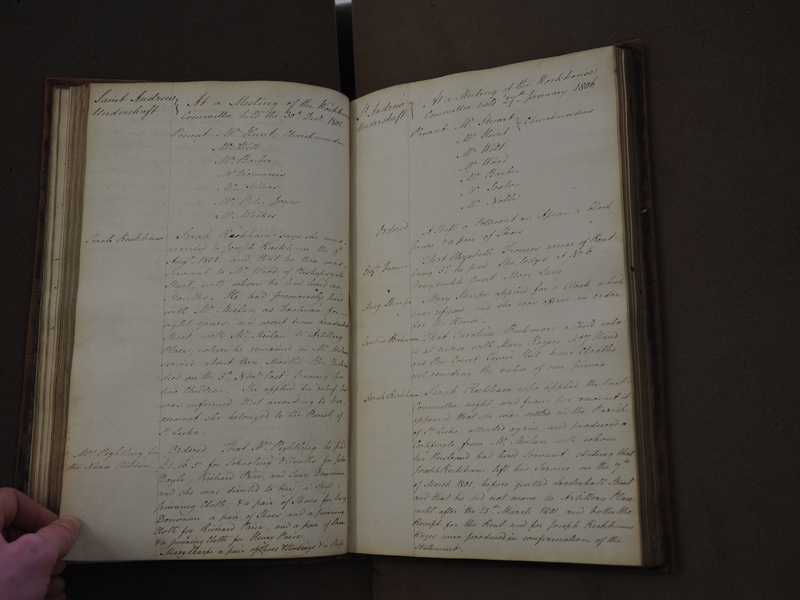 Saint Andrew Undershaft
At a Meeting of the Workhouse
Committee held the 30th Decr. 1805
Present Mr. Hunt, Churchwarden
Mr. Witt
Mr. Barber
Mr. Sellers
Mr. Peter Jones
Sarah Rackham
Sarah Rackham says she was
married to Joseph Rackham the
Augt. 1801. and that he then was
Servant to Mr. Wood of Bishopsgate
Street, with whom he had lived
Months. He had previously lived
with Mr. Meilan as Footman for
eight years and went from Leadenhall
Street with Mr. Meilan to Artillery
Place, where he remained in Mr. Meilan
Service about three Months. Her Husband
died on the 5th Novr. last leaving her
two Children. She applied for relief but
was informed that according to her
account she belonged to the Parish of
St. Lukes.
Mrs. Pightling for
the Nurse Children
Ordered, That Mrs. Pightling be paid
for Schooling & Cloaths for John
Doyle, Richard Price, and Lucy Donovan
and she was directed to buy a
pinning Cloth & a pair of Shoes for Lucy
Donovan, a pair of Shoes and a pinning
Cloth for Richard Price, and a pair of Shoes
& a pinning Cloth for Henry Price.
Mary Sharpe a pair of Shoes
St. Andrew Undershaft
At a Meeting of the Workhouse
Committee held 27th January 1806
Present Mr. Stuart
Mr. Hunt
Churchwardens
Mr. Witt
Mr. Ward
Mr. Barber
Mr. Sexton
Mr. Noble
Ordered
A Shift
pair of Shoes
Elizh. Francis
That Elizabeth Francis
be paid. She lodges at No. 6
Court
Mary Sharpe
Mary Sharpe applied for a Cloak which
was refused, and she was offered an order
for the House.
Caroline Birkmore
That Caroline Birkmore a Child who
is at nurse with Mary Rogers
Court Tower Hill have Cloaths
not exceeding the value of one
Sarah Rackham
Sarah Rackham who applied the last
Committee night, and from her account it
appeared that she was settled in the Parish
of St. Lukes, attended again, and produced a
Certificate from Mr. Meilan with whom
her Husband had lived Servant stating that
Joseph Rackham left his Service on the 7th
of March 1801, before quitted Leadenhall Street
and that he did not move to Artillery Place
until after the 25th March 1801 and both the
Receipt for the Rent and for Joseph Rackhams
Wages were produced in confirmation of the
Statement.